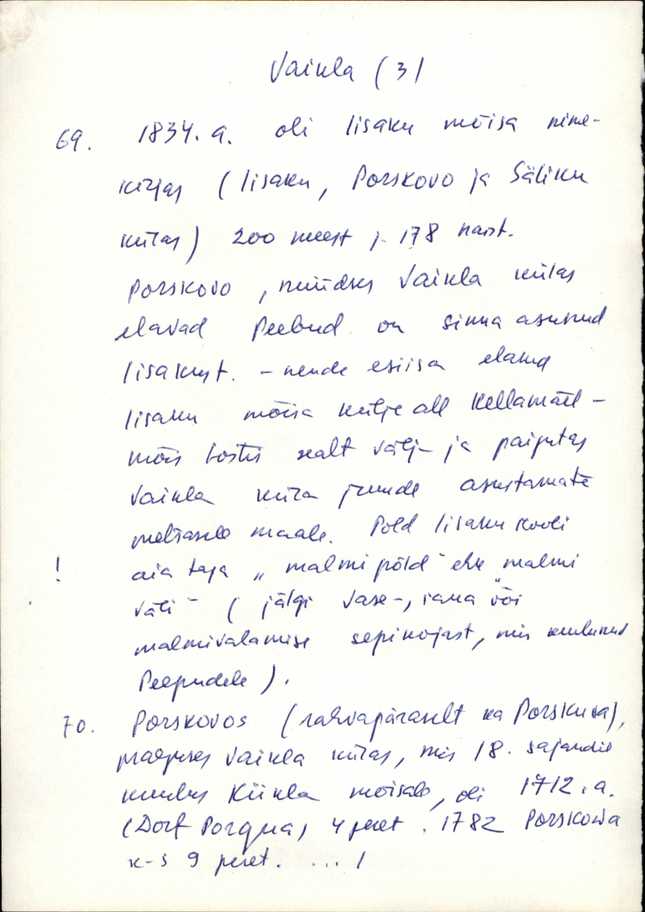 Vaikla (3)
69. 1834. a. oli Iisaku mõisa nime-
kirjas (Iisaku, Porskovo ja Säliku
külas) 200 meest j. 178 naist.
Porskovo, nüüdses Vaikla külas
elavad Peebud on sinna asunud
Iisakust. - nende esiisa elanud
Iisaku mõisa külje all Kellamäel -
mõis tostis sealt välj- ja paigutas
Vaikla küla juurde asustamata
metsasele maale. Põld Iisaku kooli
! aia taga „malmi põld" ehk „malmi
väli" (jälgi vase-, raua või
malmivalamise sepikojast, mis kuulunud
Peepudele).
70. Porskovos (rahvapäraselt ka Porskuna),
praeguses Vaikla külas, mis 18. sajandil
kuulus Kiikla mõisale, oli 1712. a.
(Dorf Porqua) 4 peret. 1782 Porskowa
k-s 9 peret. ... /